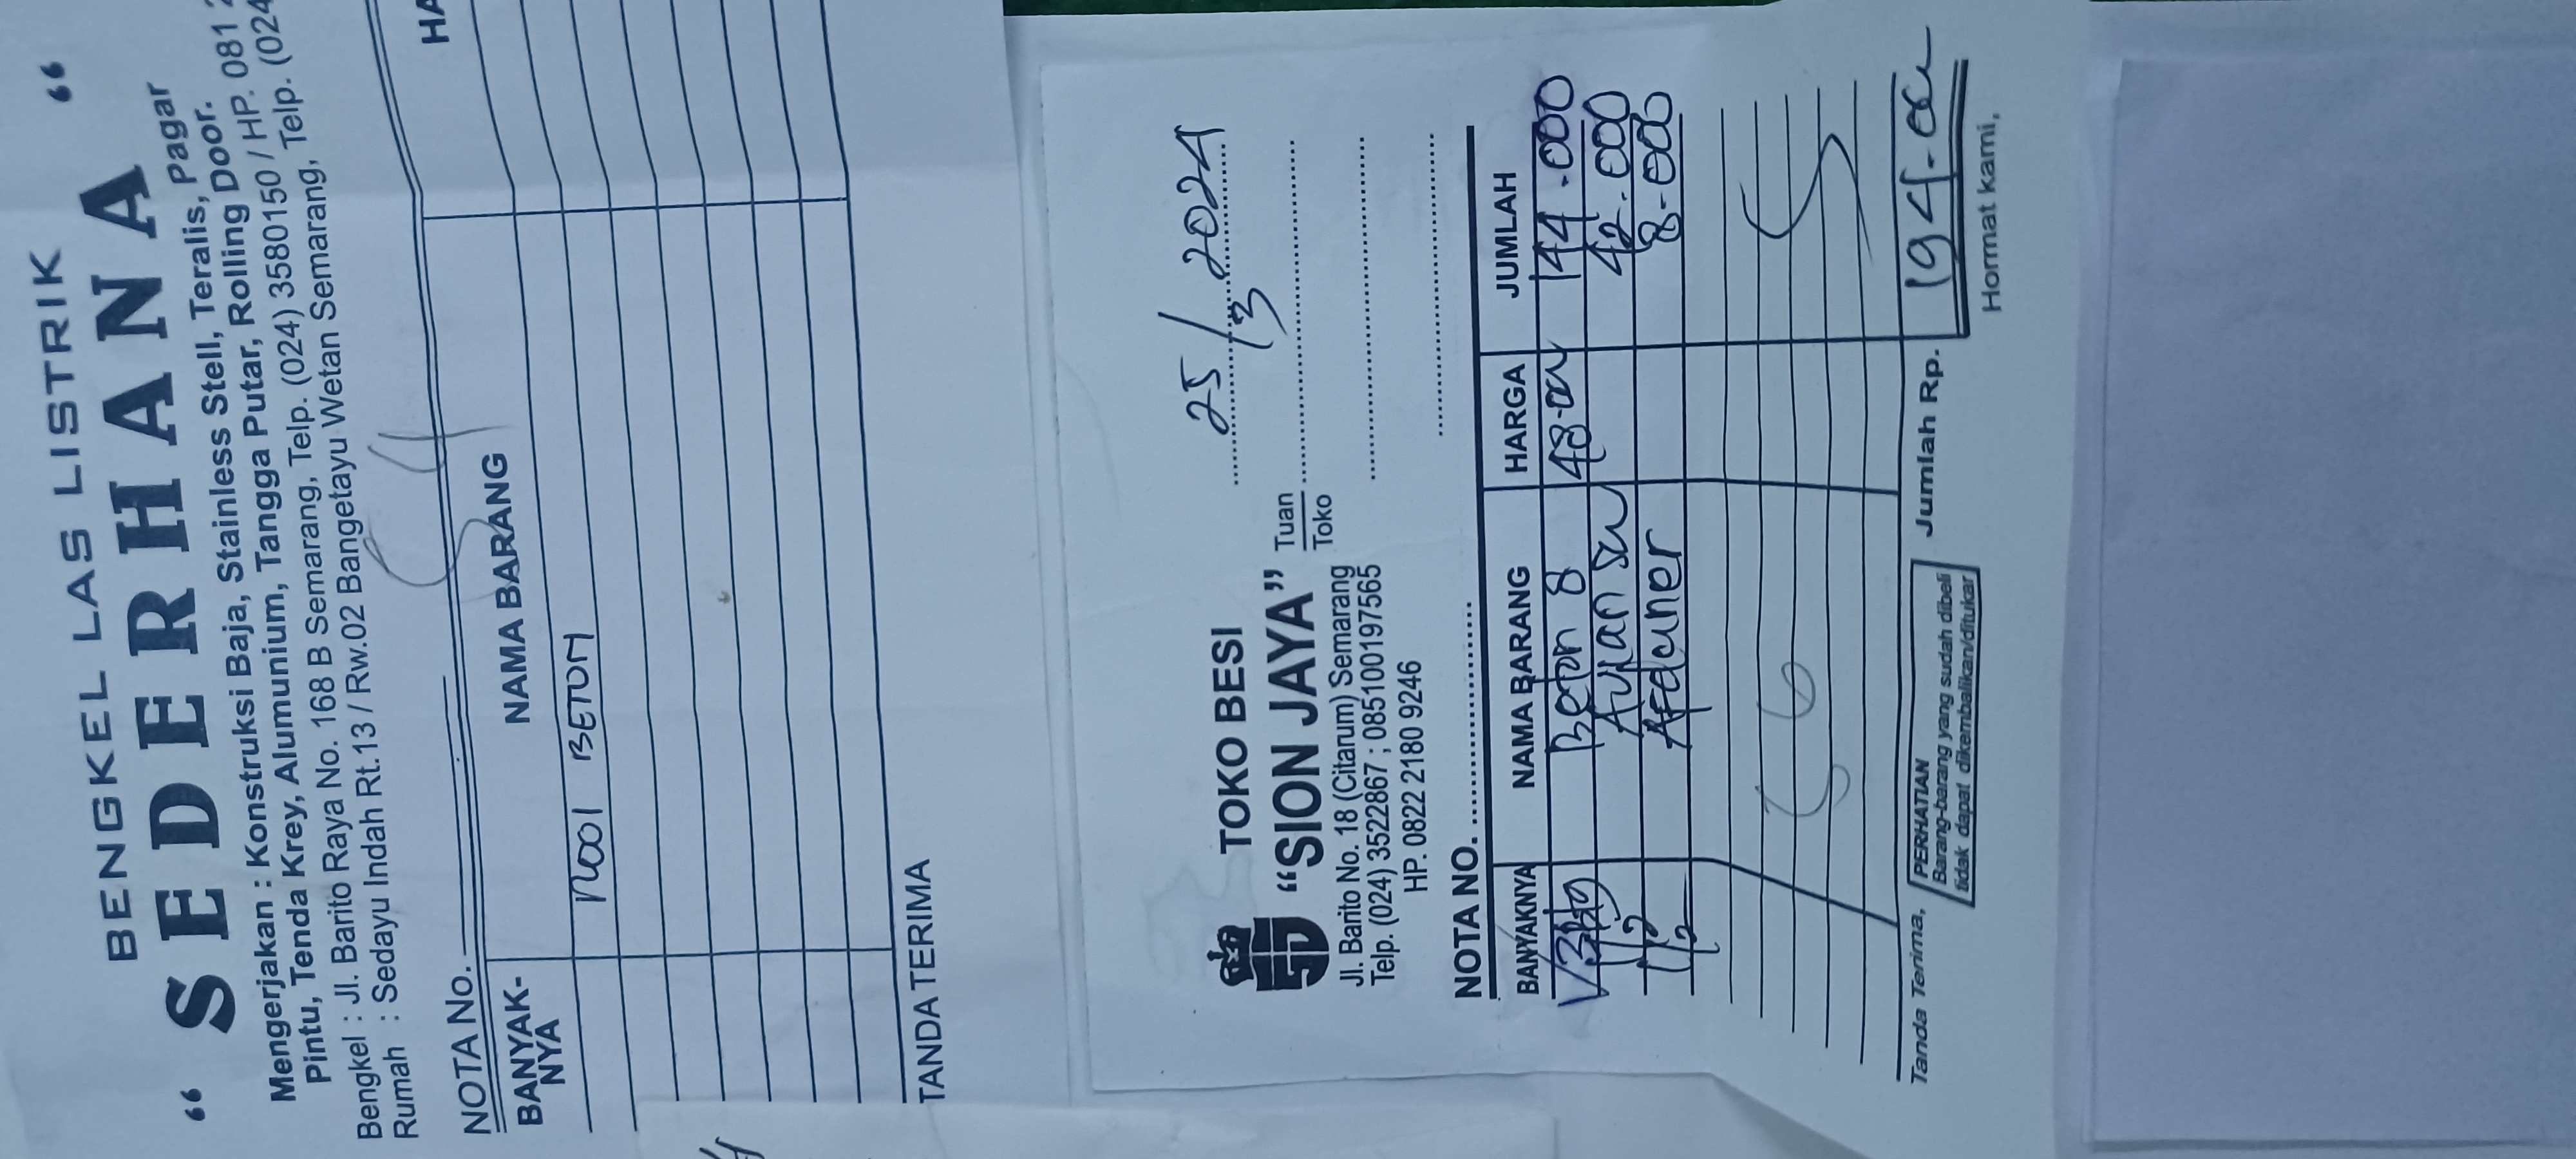 BENGKEL LAS LISTRIK
“ SEDERHANA “
Mengerjakan : Konstruksi Baja, Stainless Stell, Teralis, Pagar
Pintu, Tenda Krey, Alumunium, Tangga Putar, Rolling Door.
Bengkel : Jl. Barito Raya No. 168 B Semarang, Telp. (024) 3580150 / HP. 081
Rumah : Sedayu Indah Rt.13 / Rw.02 Bangetayu Wetan Semarang, Telp. (024
NOTA No.
BANYAK-NYA NAMA BARANG HA
BETON
TANDA TERIMA
25/3 2024
TOKO BESI
SJ “SION JAYA”
Tuan
Toko
Jl. Barito No. 18 (Citarum) Semarang
Telp. (024) 3522867 ; 085100197565
HP. 0822 2180 9246
NOTA NO.
BANYAKNYA NAMA BARANG HARGA JUMLAH
Beton 8 48.000 144.000
1/2 42.000
1/2 8.000
Tanda Terima,
PERHATIAN
Barang-barang yang sudah dibeli
tidak dapat dikembalikan/ditukar
Jumlah Rp. 194.000
Hormat kami,